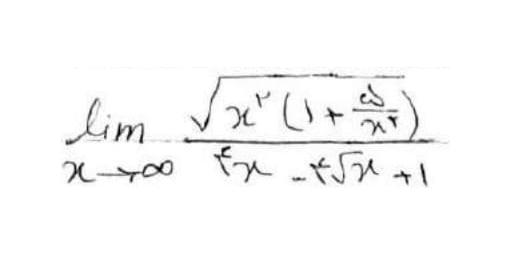 lim x→∞ √(x^۲ (۱ + ۵/x^۲)) / (۴x - ۴√x + ۱)